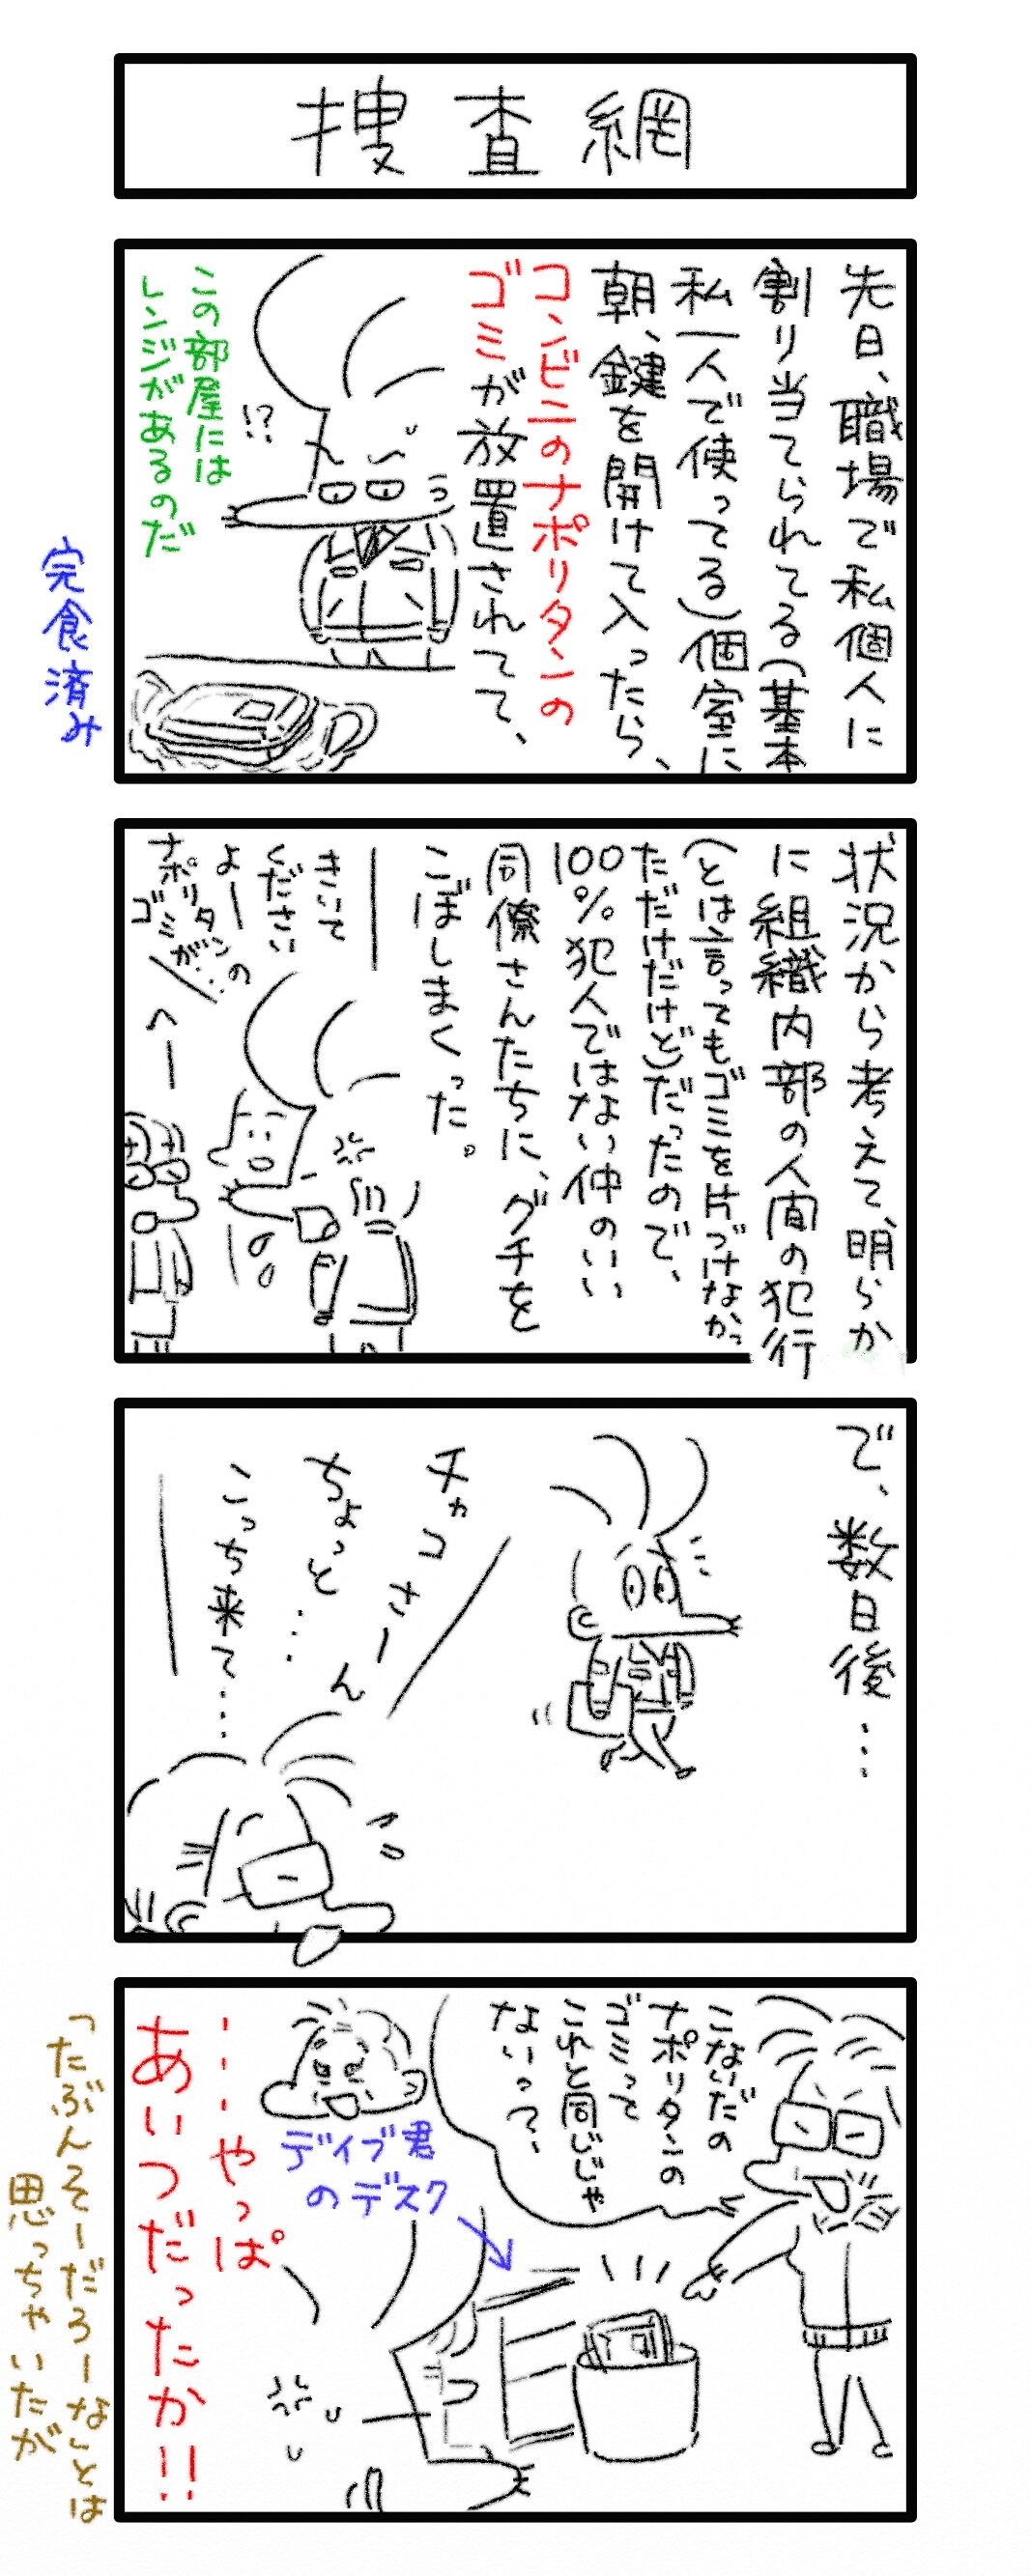 捜査網
先日、職場で私個人に
割り当てられてる(基本
私一人で使ってる)個室に
朝、鍵を開けて入ったら、
コンビニのナポリタンの
ゴミが放置されてて、
!?
この部屋には
レンジがあるのだ
完食済み
状況から考えて、明らか
に組織内部の人間の犯行
(とは言ってもゴミを片づけなかっ
ただけだけど)だったので、
100%犯人ではない仲のいい
同僚さんたちに、グチを
こぼしまくった。
きいて
ください
よー
ナポリタンの
ゴミが…
へー
で、数日後…
チャコさーん
ちょっと…
こっち来て…
こないだの
ナポリタンの
ゴミって
これと同じじゃ
ないっ?
デイブ君
のデスク
……やっぱ
あいつだったか!!
ったぶんそーだろーなことは
思っちゃいたが